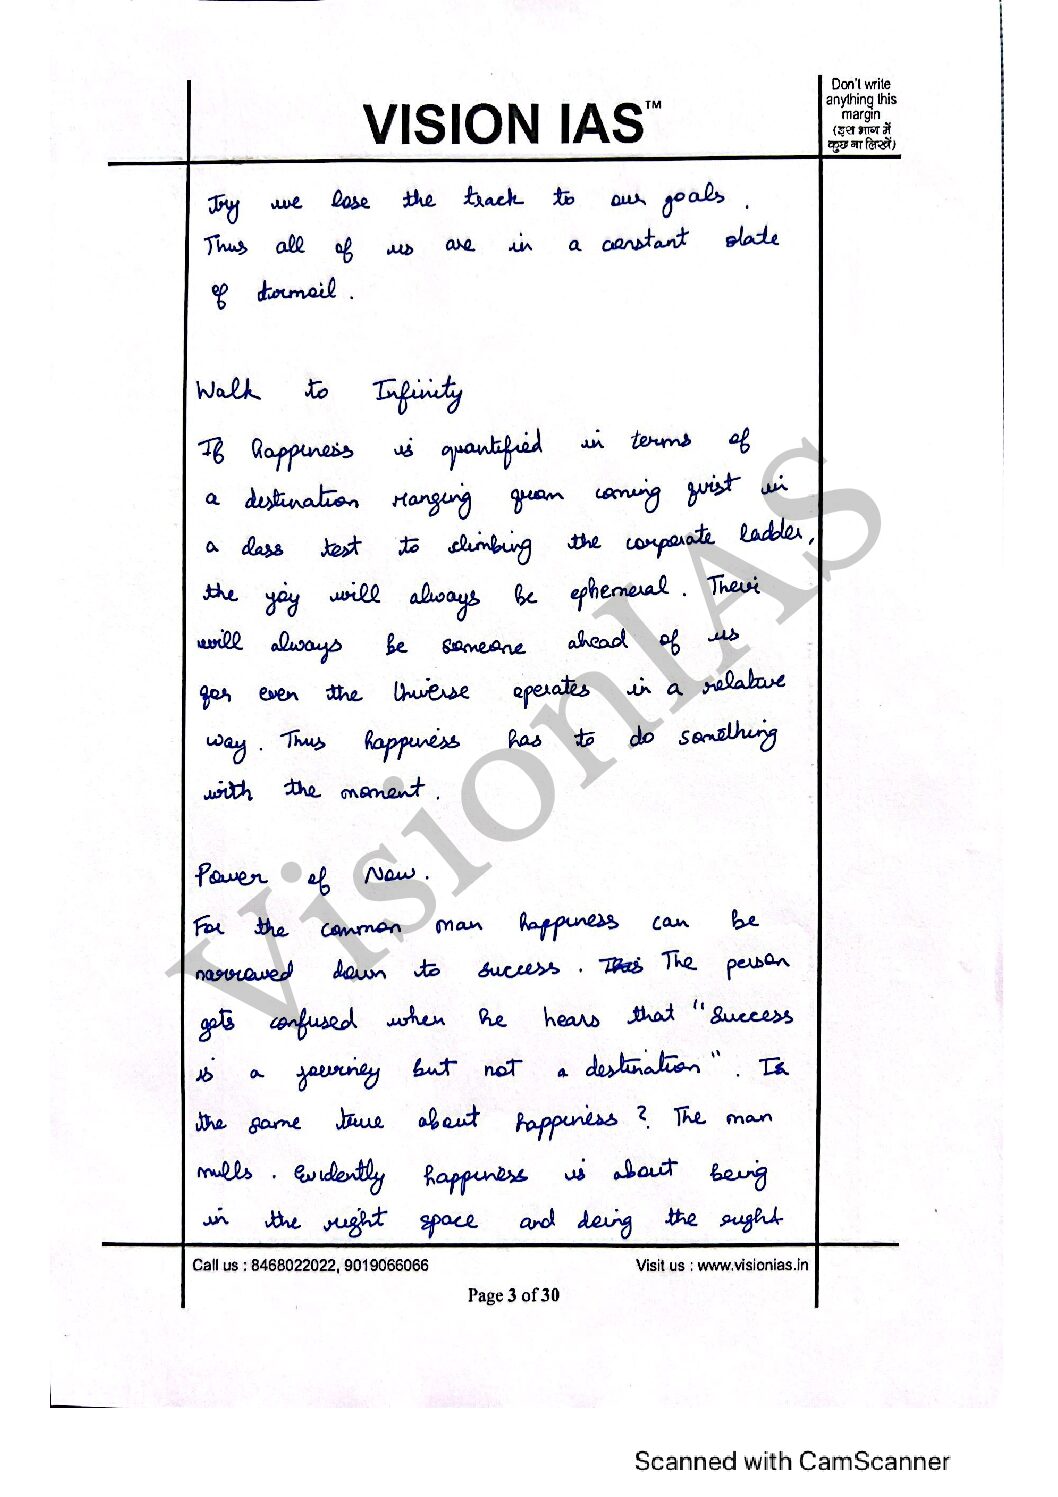 VISION IAS™
Don't write
anything this
margin
(इस भाग में
कुछ ना लिखें)
Joy we lose the track to our goals.
Thus all of us are in a constant state
of turmoil.
Walk to Infinity
If happiness is quantified in terms of
a destination ranging from coming first in
a class test to climbing the corporate ladder,
the joy will always be ephemeral. There
will always be someone ahead of us
for even the Universe operates in a relative
way. Thus happiness has to do something
with the moment.
Power of Now.
For the common man happiness can be
narrowed down to success. This The person
gets confused when he hears that "Success
is a journey but not a destination". Is
the same true about happiness? The man
mulls. Evidently happiness is about being
in the right space and doing the right
VisionIAS
Call us : 8468022022, 9019066066
Visit us : www.visionias.in
Page 3 of 30
Scanned with CamScanner